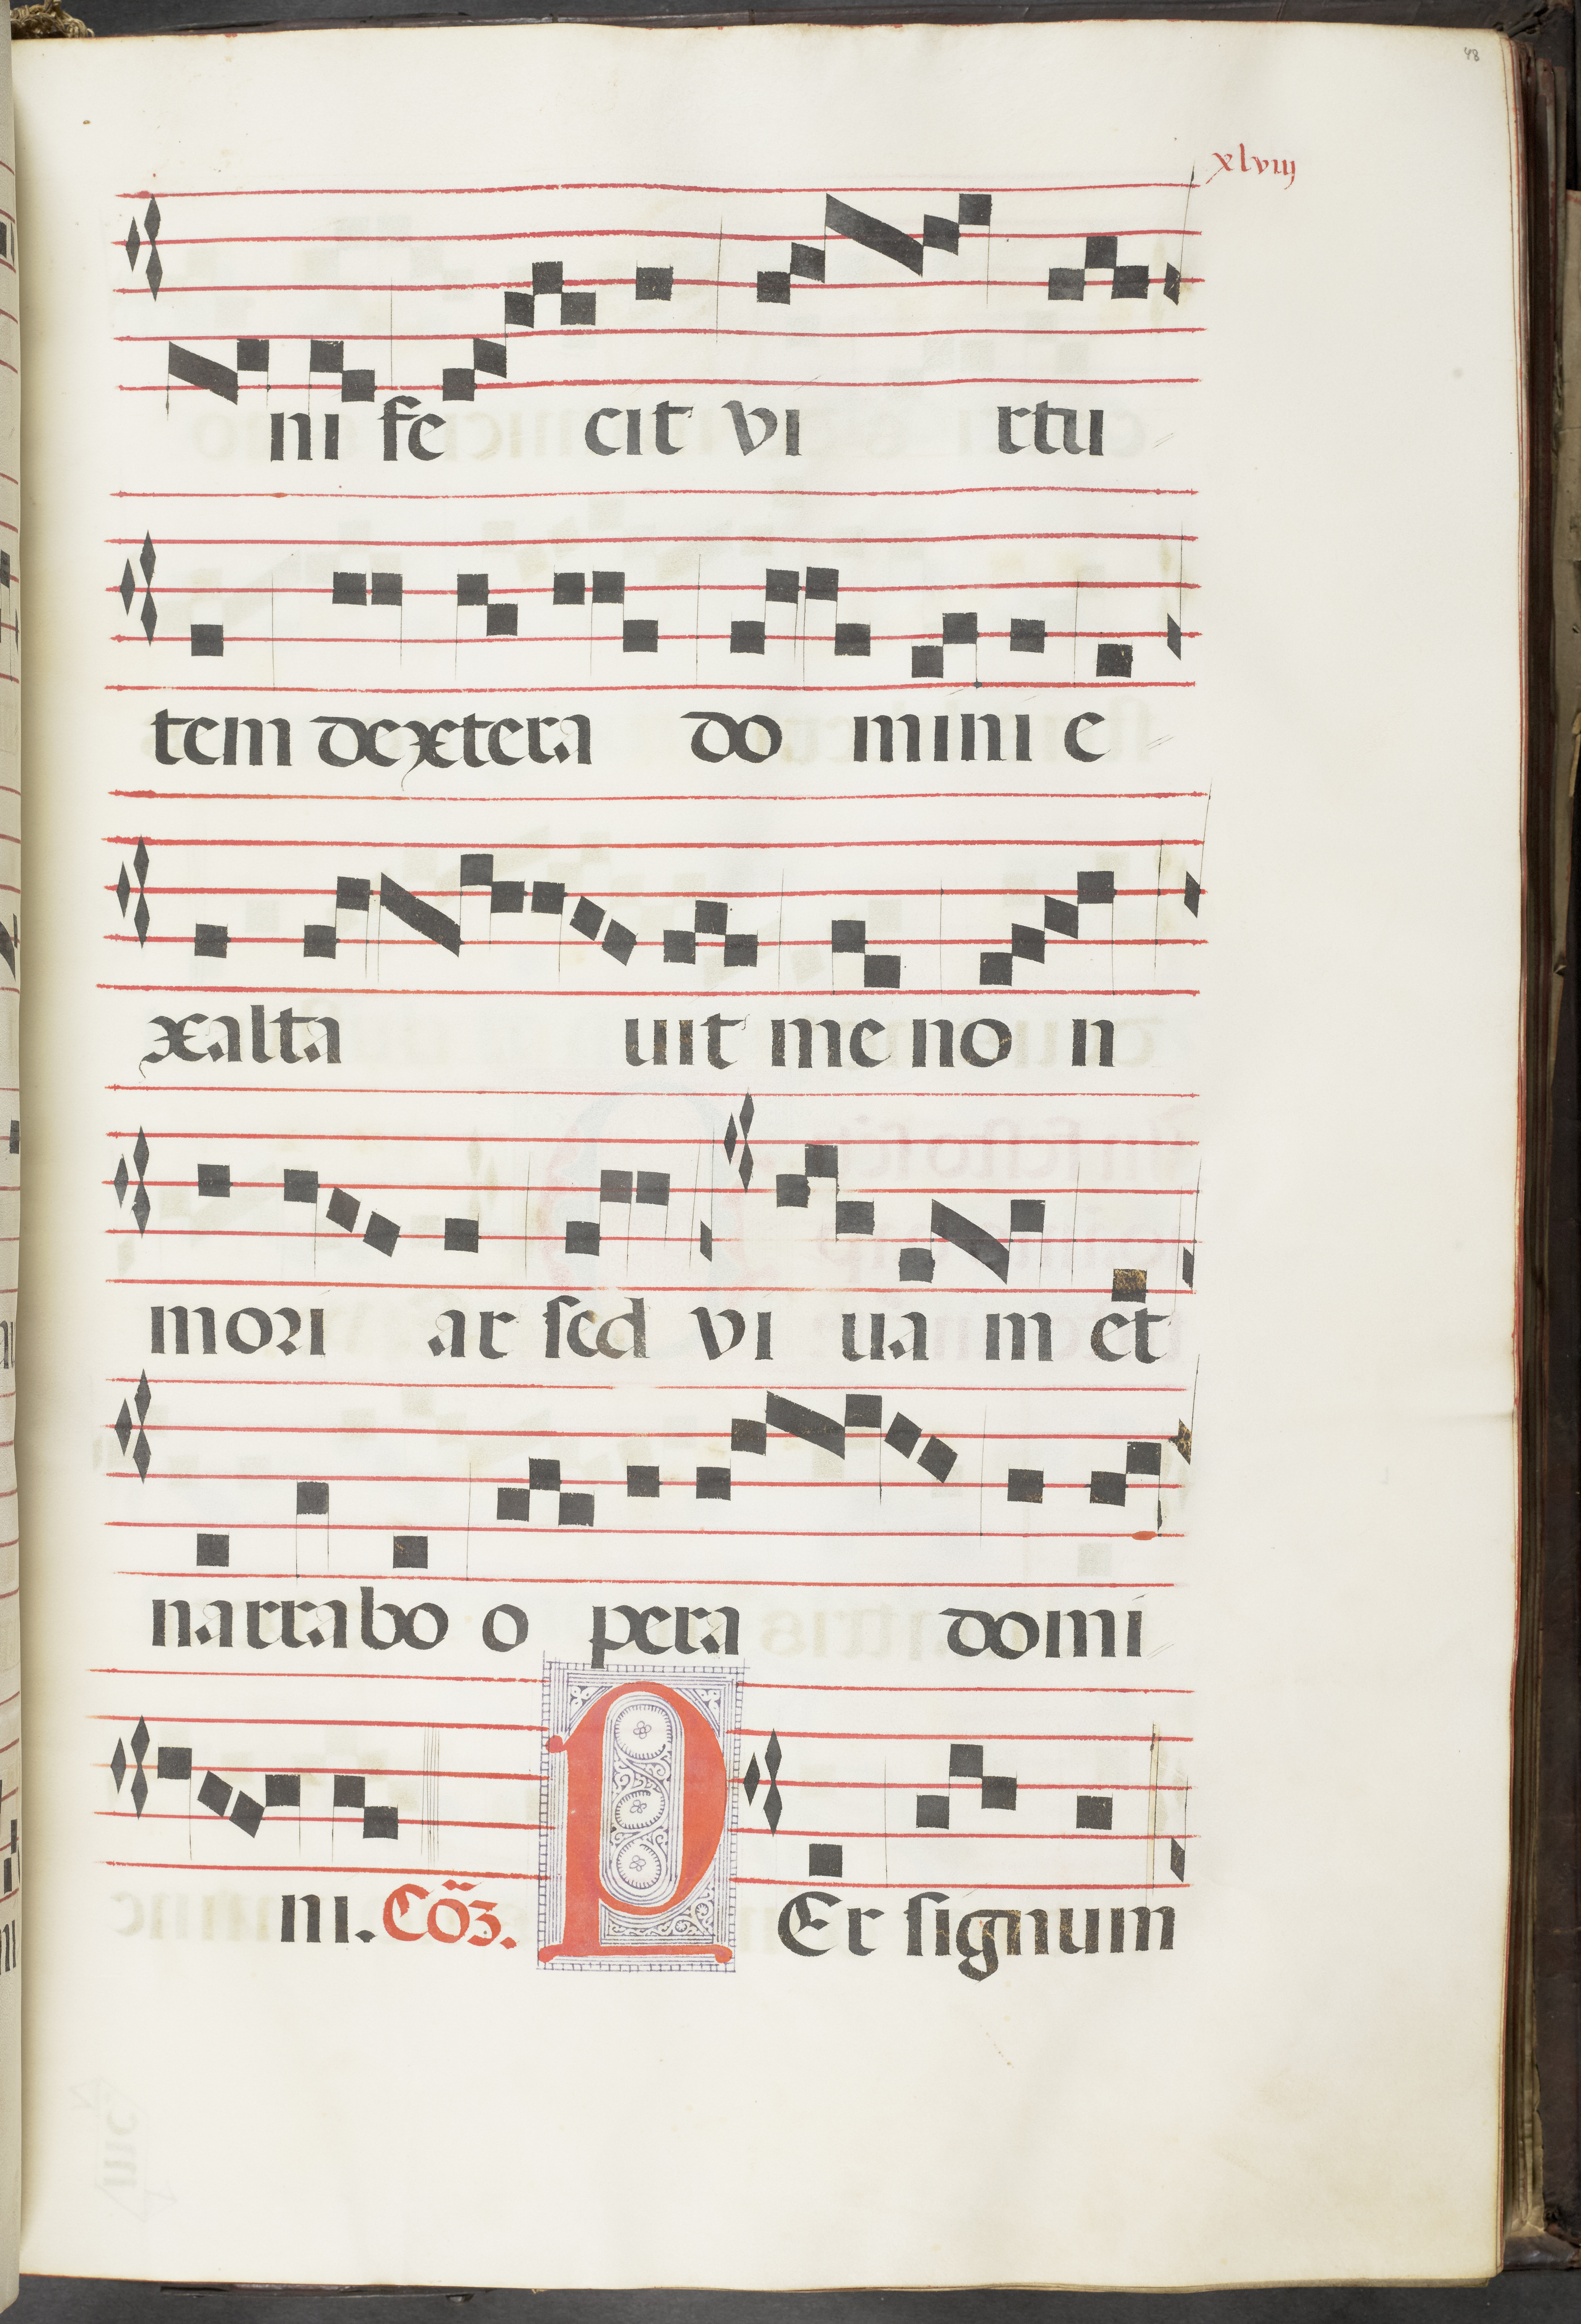 48
xlviij
ni fe cit vi rtu
tem dextera do mini e
xalta uit me no n
mori ar sed vi ua m et
narrabo o pera domi
ni. Cõz. P Er signum